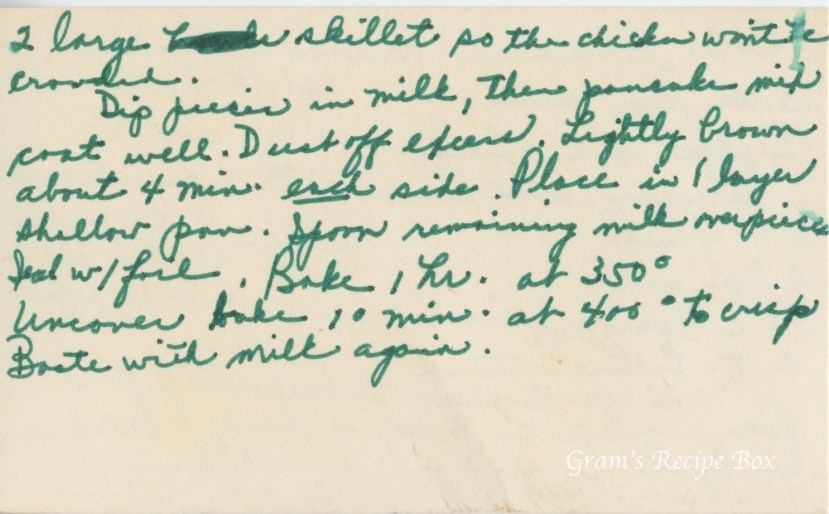 2 large skillet so the chicken won't be
crowded.
Dip pieces in milk, then pancake mix
coat well. Dust off excess. Lightly brown
about 4 min. each side. Place in 1 layer
shallow pan. Spoon remaining milk over pieces
Seal w/ foil. Bake 1 hr. at 350°
Uncover bake 10 min. at 400° to crisp
Baste with milk again.
Gram's Recipe Box